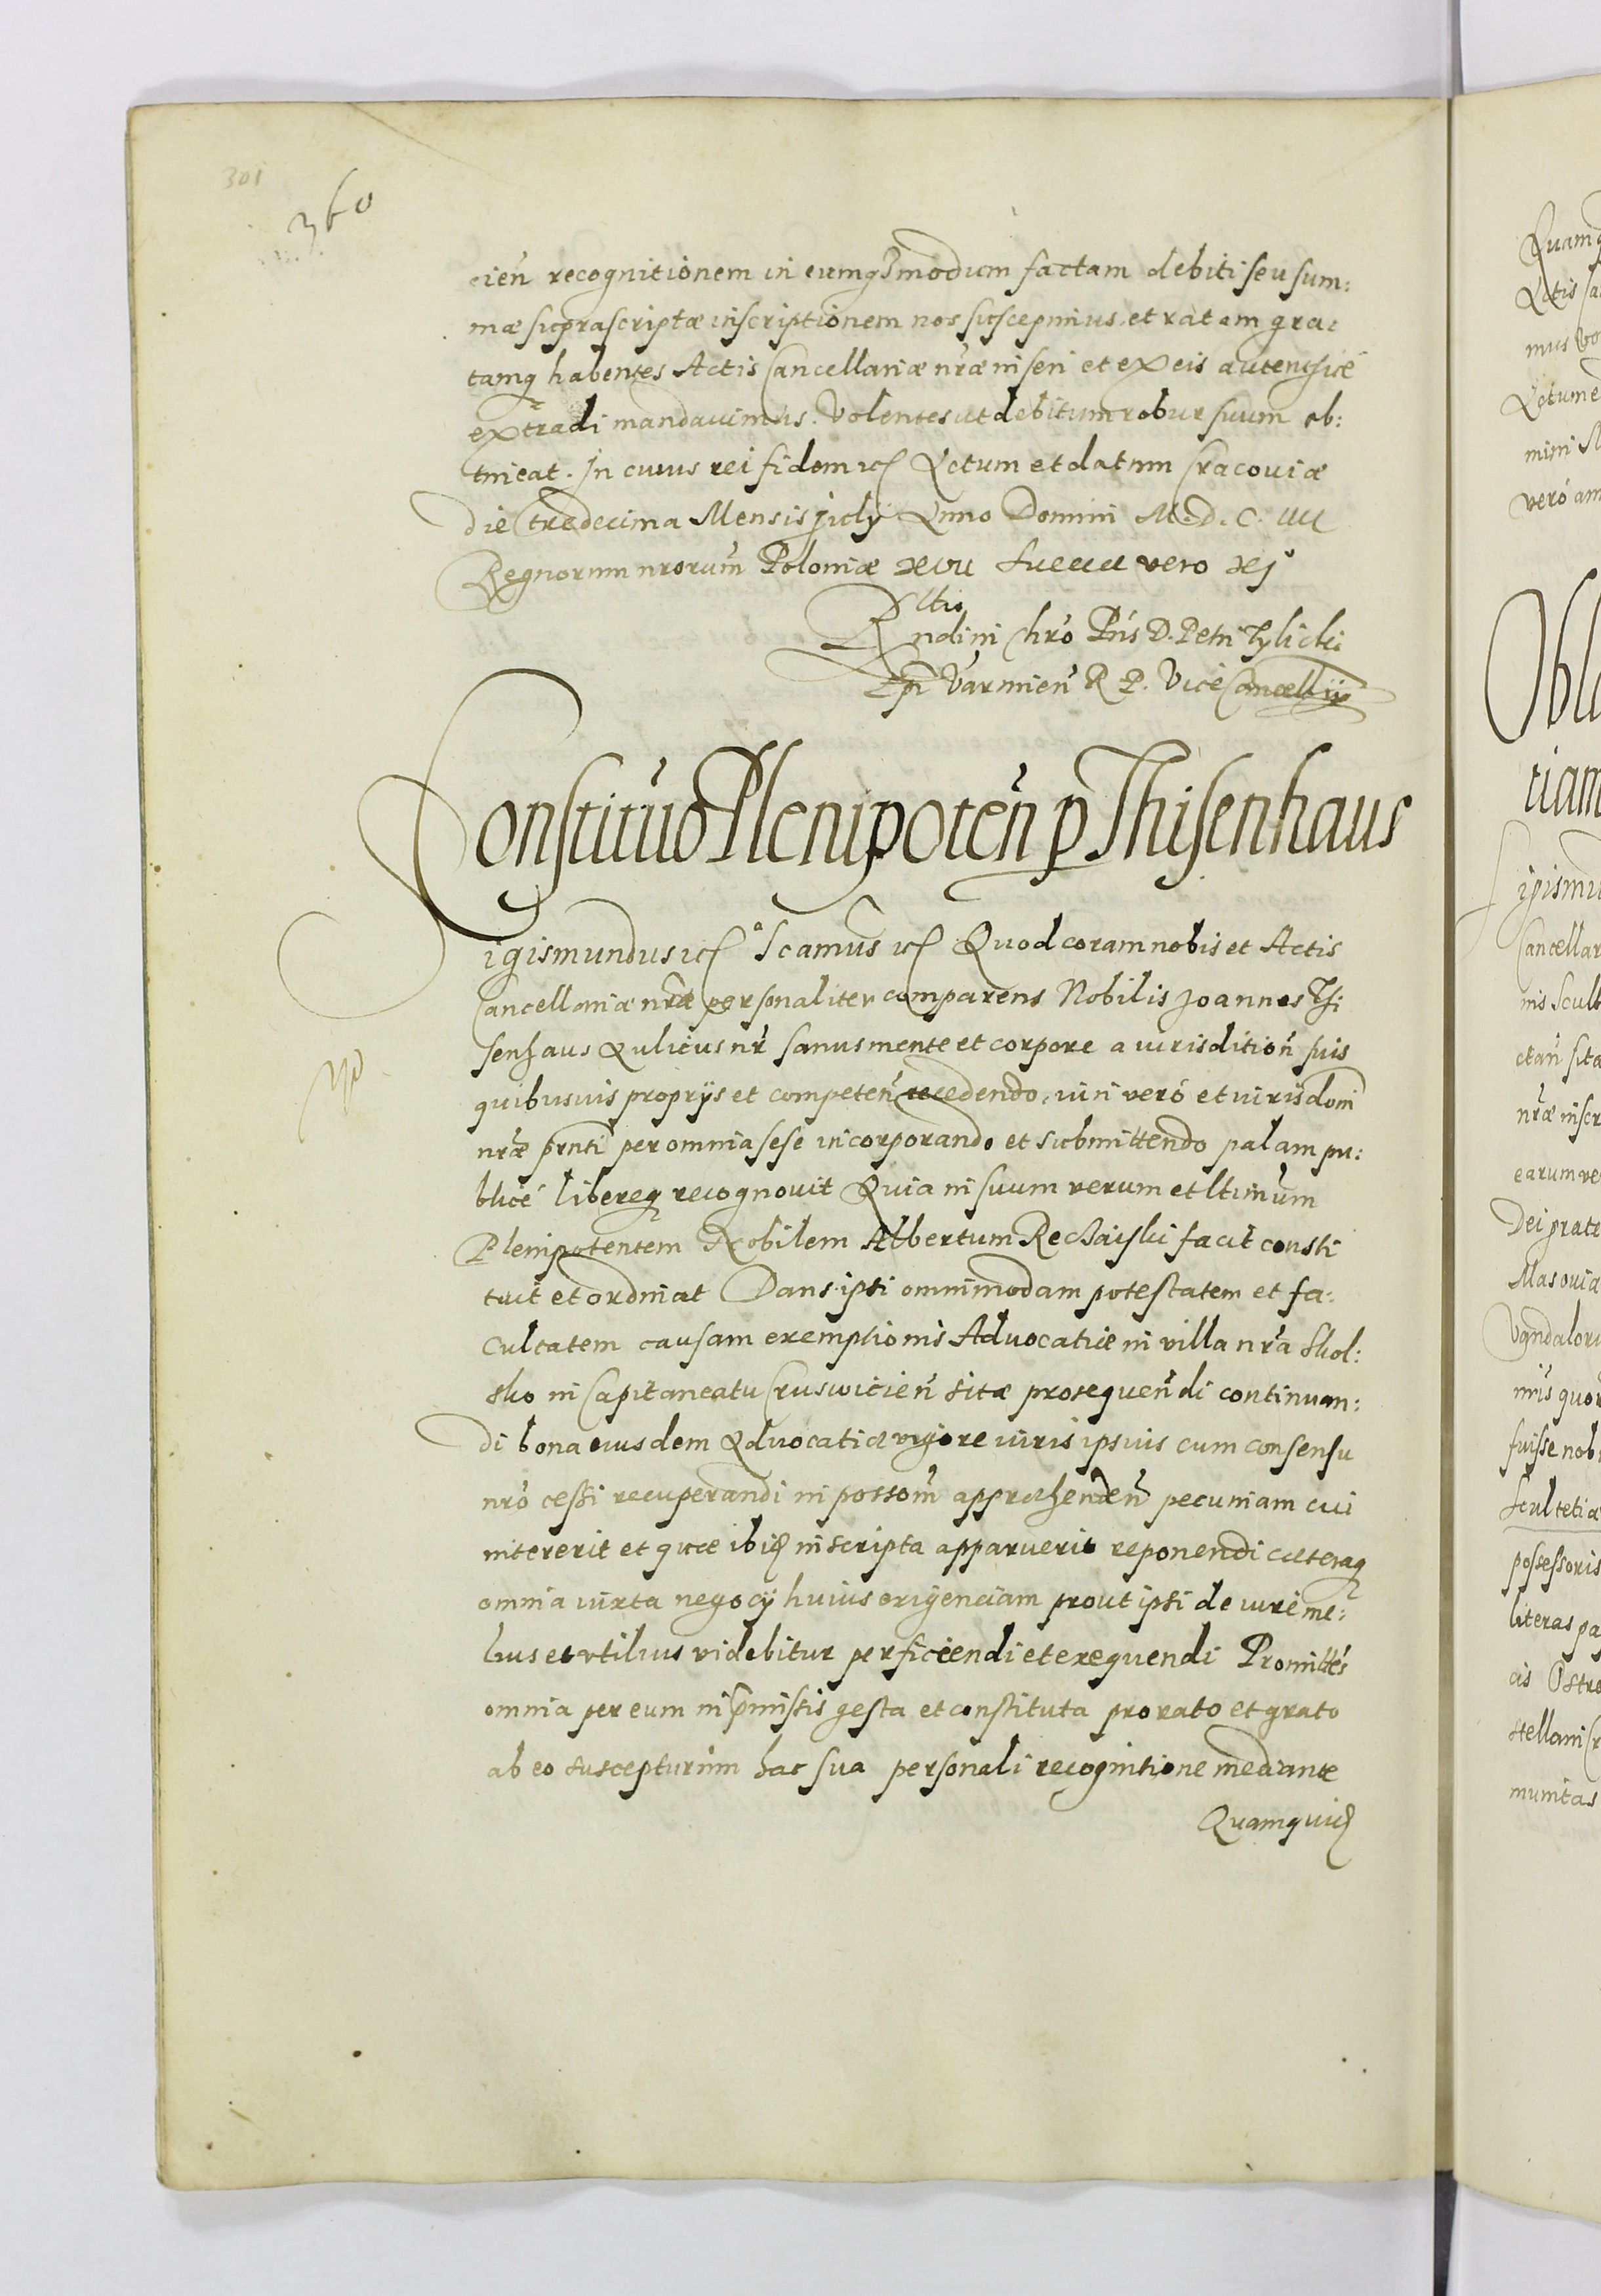 301
360
cień recognitionem in eumqʒ modum factam debiti seu sum:
mæ suprascriptæ inscriptionem nos suscepimus et ratam gra:
tamq habentes Actis Cancellariæ nræ inseri et ex eis autenticé
extradi mandauimus. Volentes ut debitum robur suum ob:
tineat. In cuius rei fidem etc Actum et datum Cracouiæ
die tredecima Mensis July Anno Domini M.D.C. IIII
Regnorum nrorum Poloniæ xvii Sueciæ vero xj°
Rltio
Rndi in Chrō Pris D. Petri Tylicki
Epi Varmień R P. Vice Cancellrij
Constitutio Plenipoteń p Thisenhaus
Sigismundus etc Scamus etc Quod coram nobis et Actis
Cancellariæ nræ personaliter comparens Nobilis Joannes Thi
senhaus Aulicus nr sanus mente et corpore a iurisditioń suis
quibusuis proprijs et competeń recedendo, iuri veró et iurisdoni
nræ prnti per omnia sese incorporando et submittendo palam pu:
blicé libereq recognouit Quia in suum verum et ltimum
Plenipotentem Nobilem Albertum Rechaiski facit consti
tuit et ordinat Dans ipsi omnimodam potestatem et fa:
cultatem causam exemptionis Aduocatiæ in villa nra Skol:
sko in Capitaneatu Cruswicień sitæ prosequendi continuan:
di bona eiusdem Aduocatiæ vigore iuris ipsius cum consensu
nrō cessi recuperandi in possom̄ apprehendeń pecuniam cui
intererit et quæ ibid inscripta apparuerit reponendi cæteraq
omnia iuxta negocij huius exigenciam prout ipsi de iure me:
lius et vtilius videbitur perficiendi et exequendi Promittés
omnia per eum in pmistis gesta et constituta pro rato et grato
ab eo suscepturum hac sua personali recognitione mediante
Quamquid